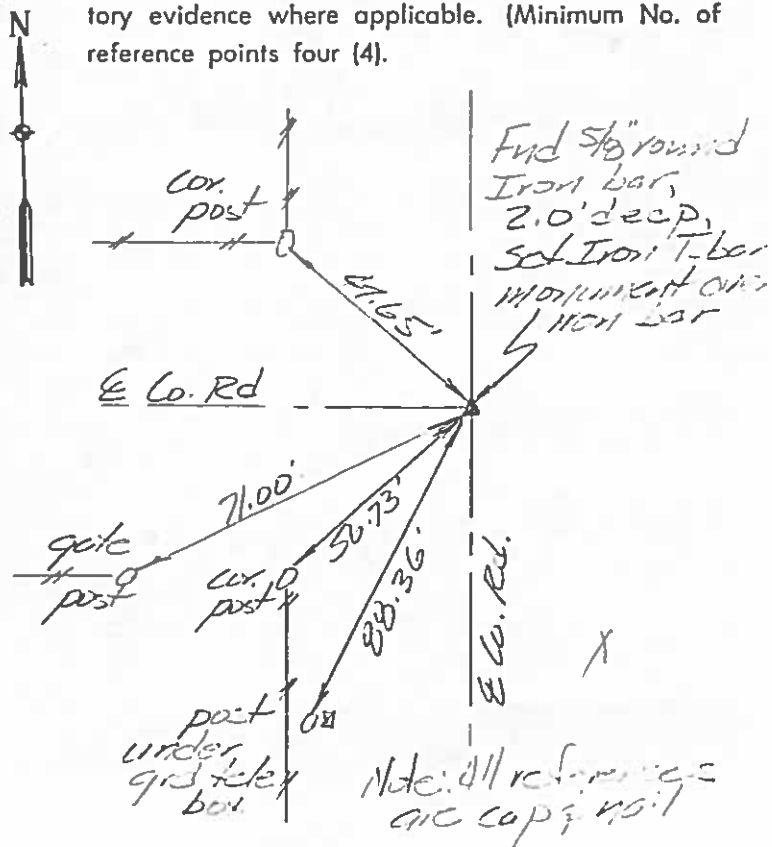 tory evidence where applicable. (Minimum No. of
reference points four (4).
N
Fnd 5/8" round
Iron bar,
2.0' deep,
Set Iron T-bar
monument over
iron bar
cor.
post
℄ Co. Rd
71.00'
50.73'
88.36'
gate
post
cor.
post
℄ Co. Rd.
X
post
under
grd tele
box
Note: All references
are cap & nail